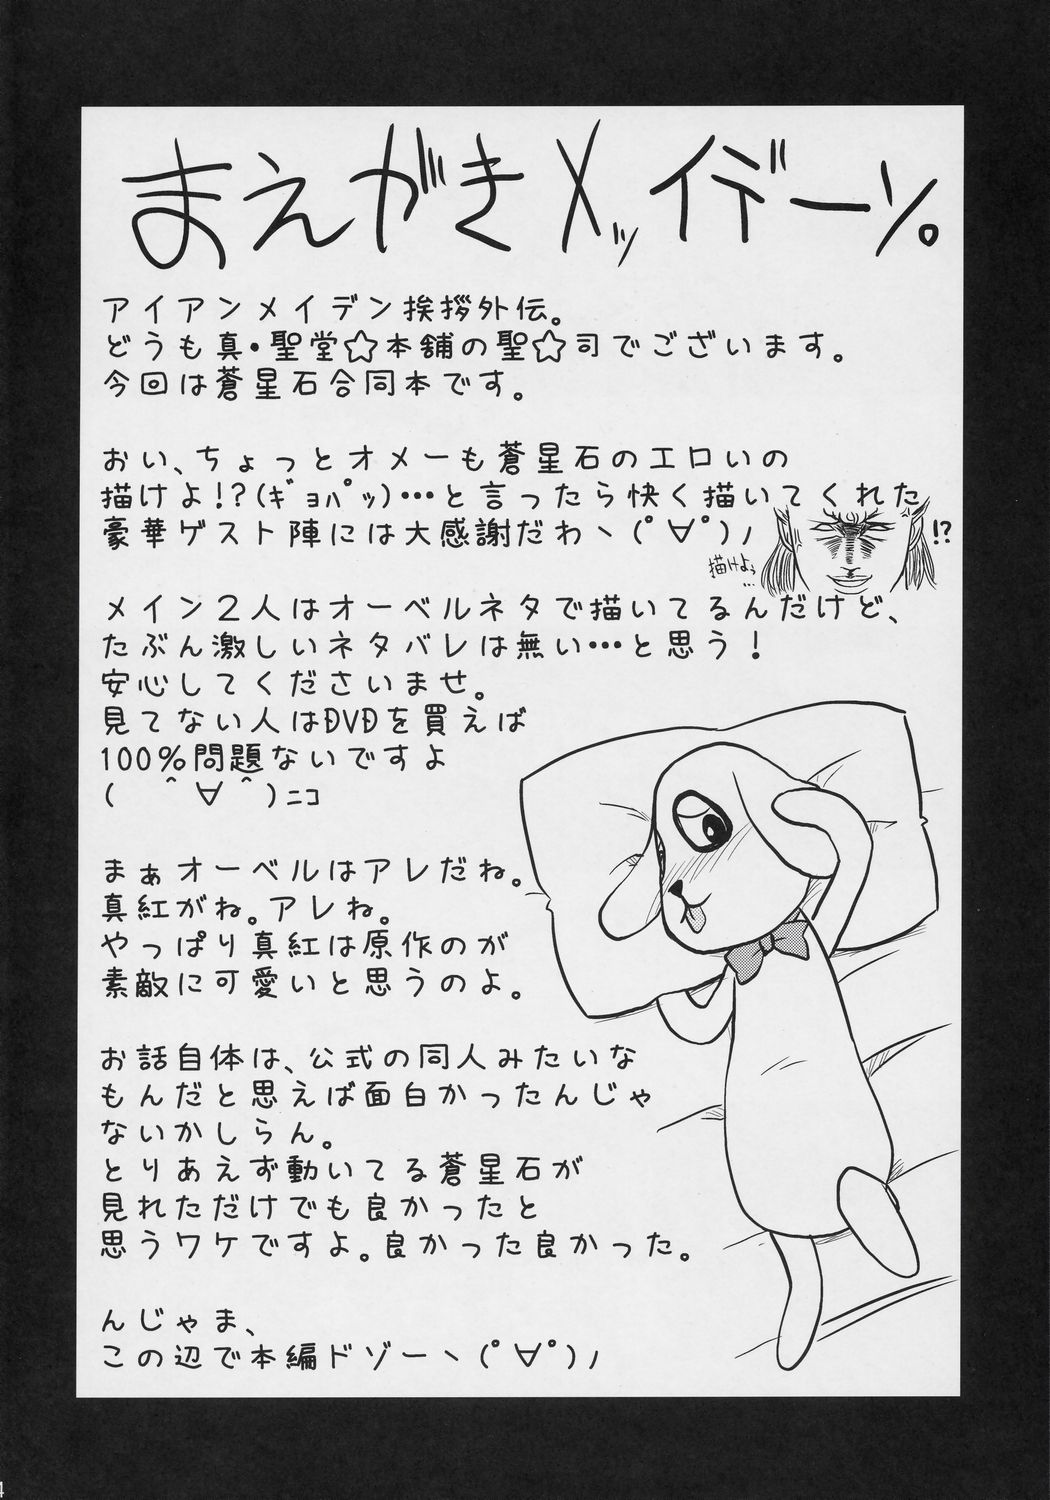 まえがきメッイデーン。
アイアンメイデン挨拶外伝。
どうも真・聖堂☆本舗の聖☆司でございます。
今回は蒼星石合同本です。
おい、ちょっとオメーも蒼星石のエロいの
描けよ!?(ｷﾞｮﾊﾟｯ)…と言ったら快く描いてくれた
豪華ゲスト陣には大感謝だわヽ(ﾟ∀ﾟ)ﾉ
!?
描けよぅ…
メイン２人はオーベルネタで描いてるんだけど、
たぶん激しいネタバレは無い…と思う！
安心してくださいませ。
見てない人はDVDを買えば
100%問題ないですよ
(　＾∀＾)ﾆｺ
まぁオーベルはアレだね。
真紅がね。アレね。
やっぱり真紅は原作のが
素敵に可愛いと思うのよ。
お話自体は、公式の同人みたいな
もんだと思えば面白かったんじゃ
ないかしらん。
とりあえず動いてる蒼星石が
見れただけでも良かったと
思うワケですよ。良かった良かった。
んじゃま、
この辺で本編ドゾーヽ(ﾟ∀ﾟ)ﾉ
4